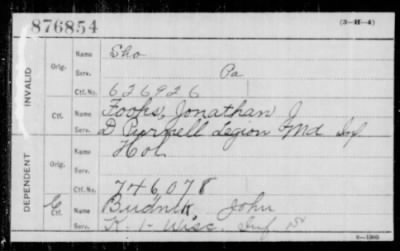 876854
(3-H-4)
INVALID
Orig.
Name Sho
Serv. Pa
Ctf. No. 626926
Ctf.
Name Foohs, Jonathan J
Serv. D Purnell Legion Md. Inf.
DEPENDENT
Orig.
Name Hol
Serv.
Ctf. No. 746078
C Ctf.
Name Budnik, John
Serv. K. 1- Wisc. Inf